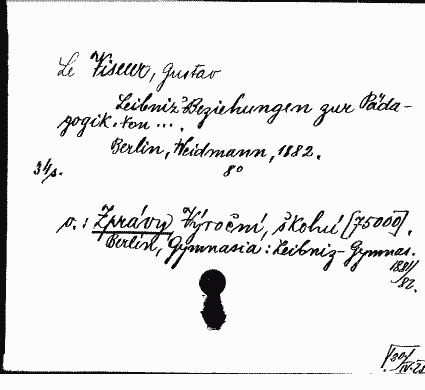 Le Viseur, Gustav
Leibniz' Beziehungen zur Päda-
gogik. Von ... .
Berlin, Weidmann, 1882.
34/s. 8°
v.: Zprávy Výroční, školní [75000].
Berlin, Gymnasia: Leibniz-Gymnas.
1881/
82.